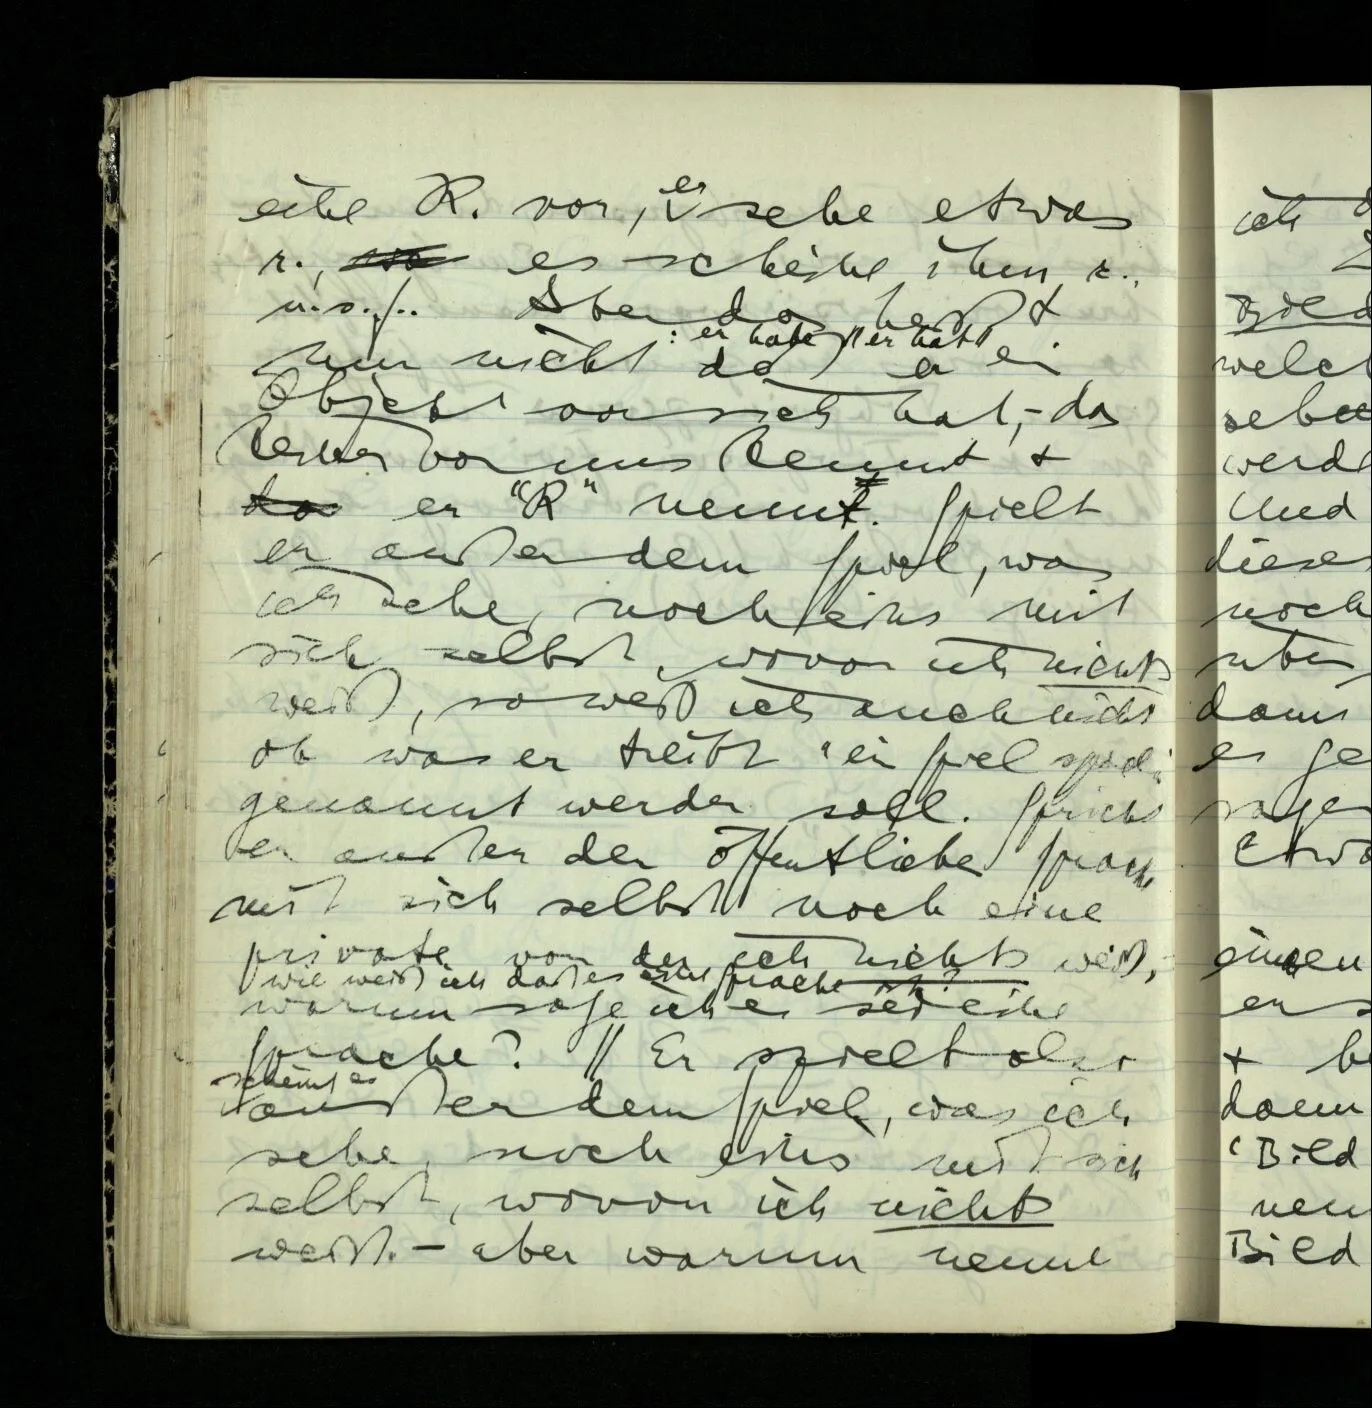 eine R. vor, er sehe etwas
r., es scheine ihm r.,
u.s.f.. Aber das heißt
: er habe // er hat //
nun nicht daß er ein
Objekt vor sich hat, – das
keiner von uns kennt +
er “R” nennt. Spielt
er außer dem Spiel, was
ich sehe, noch eins mit
sich selbst, wovon ich nichts
weiß, so weiß ich auch nicht
ob was er treibt “ein Spiel spielen”
genannt werden soll. Spricht
er außer der öffentlichen Sprache
mit sich selbst noch eine
private von der ich nichts weiß,
wie weiß ich daß es eine Sprache ist?
warum sage ich es sei eine
Sprache? // Er spielt also
scheint es
außer dem Spiel, was ich
sehe, noch eins mit sich
selbst, wovon ich nichts
weiß. – aber warum nenne
ich
Bild
Und
noch
dann
es
'Bild
Bild